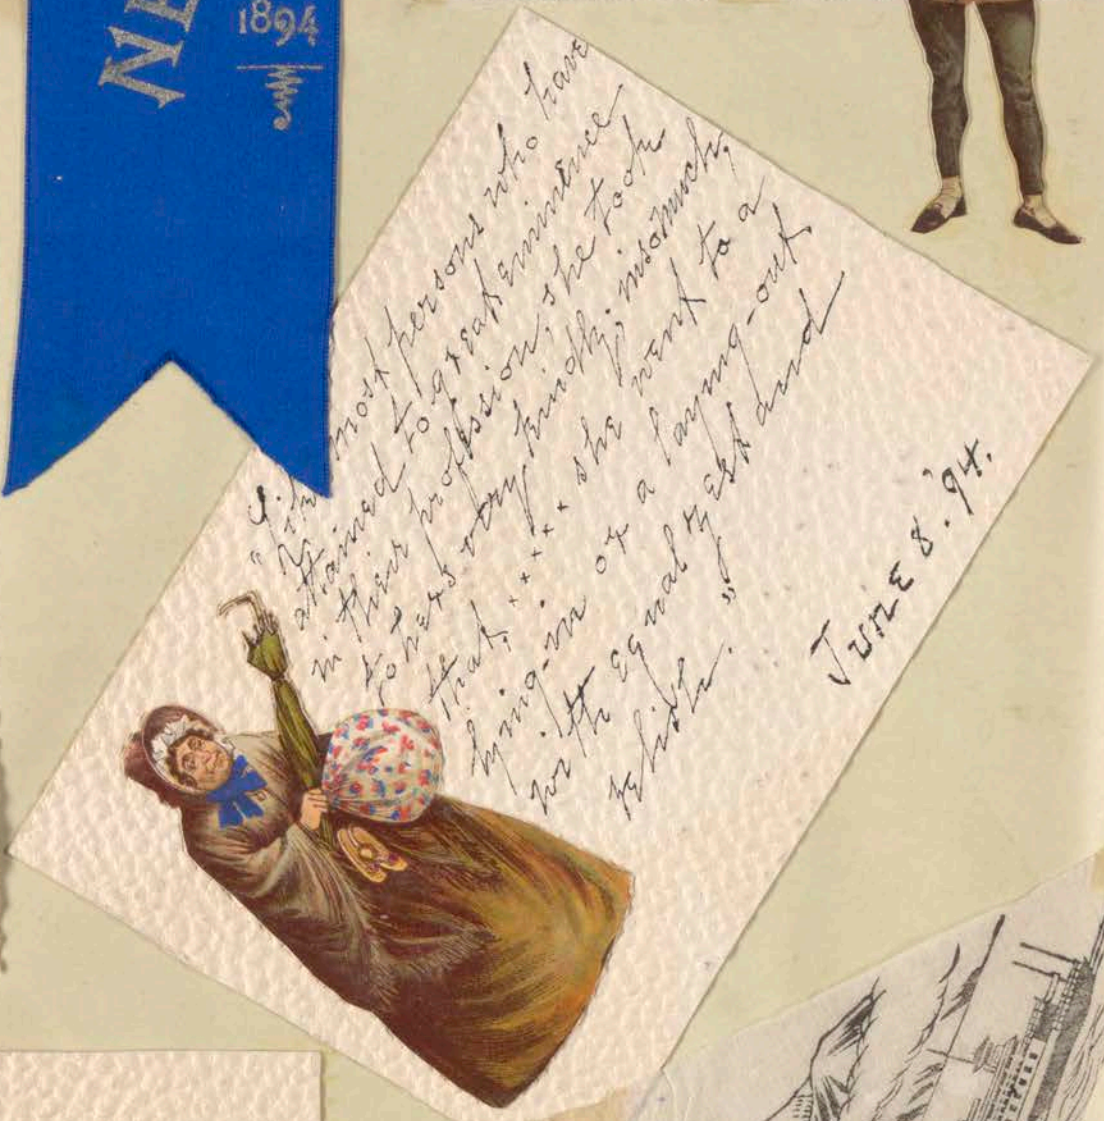 NE
1894
"Lik most persons who have
attained to great eminence
in their profession, she took
to hers very kindly; insomuch,
that, x x x x x she went to a
lying-in or a laying-out
with equal zest and
relish."
June 8. '94.